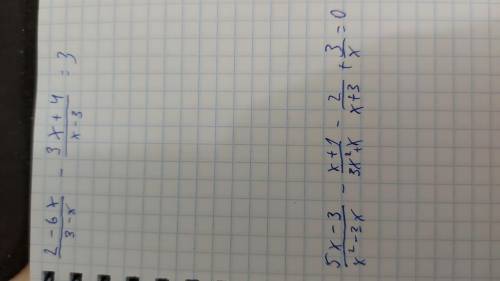 (2 - 6x)/(3 - x) - (3x + 4)/(x - 3) = 3
(5x - 3)/(x² - 3x) - (x + 1)/(3x² + x) - 2/(x + 3) + 3/x = 0